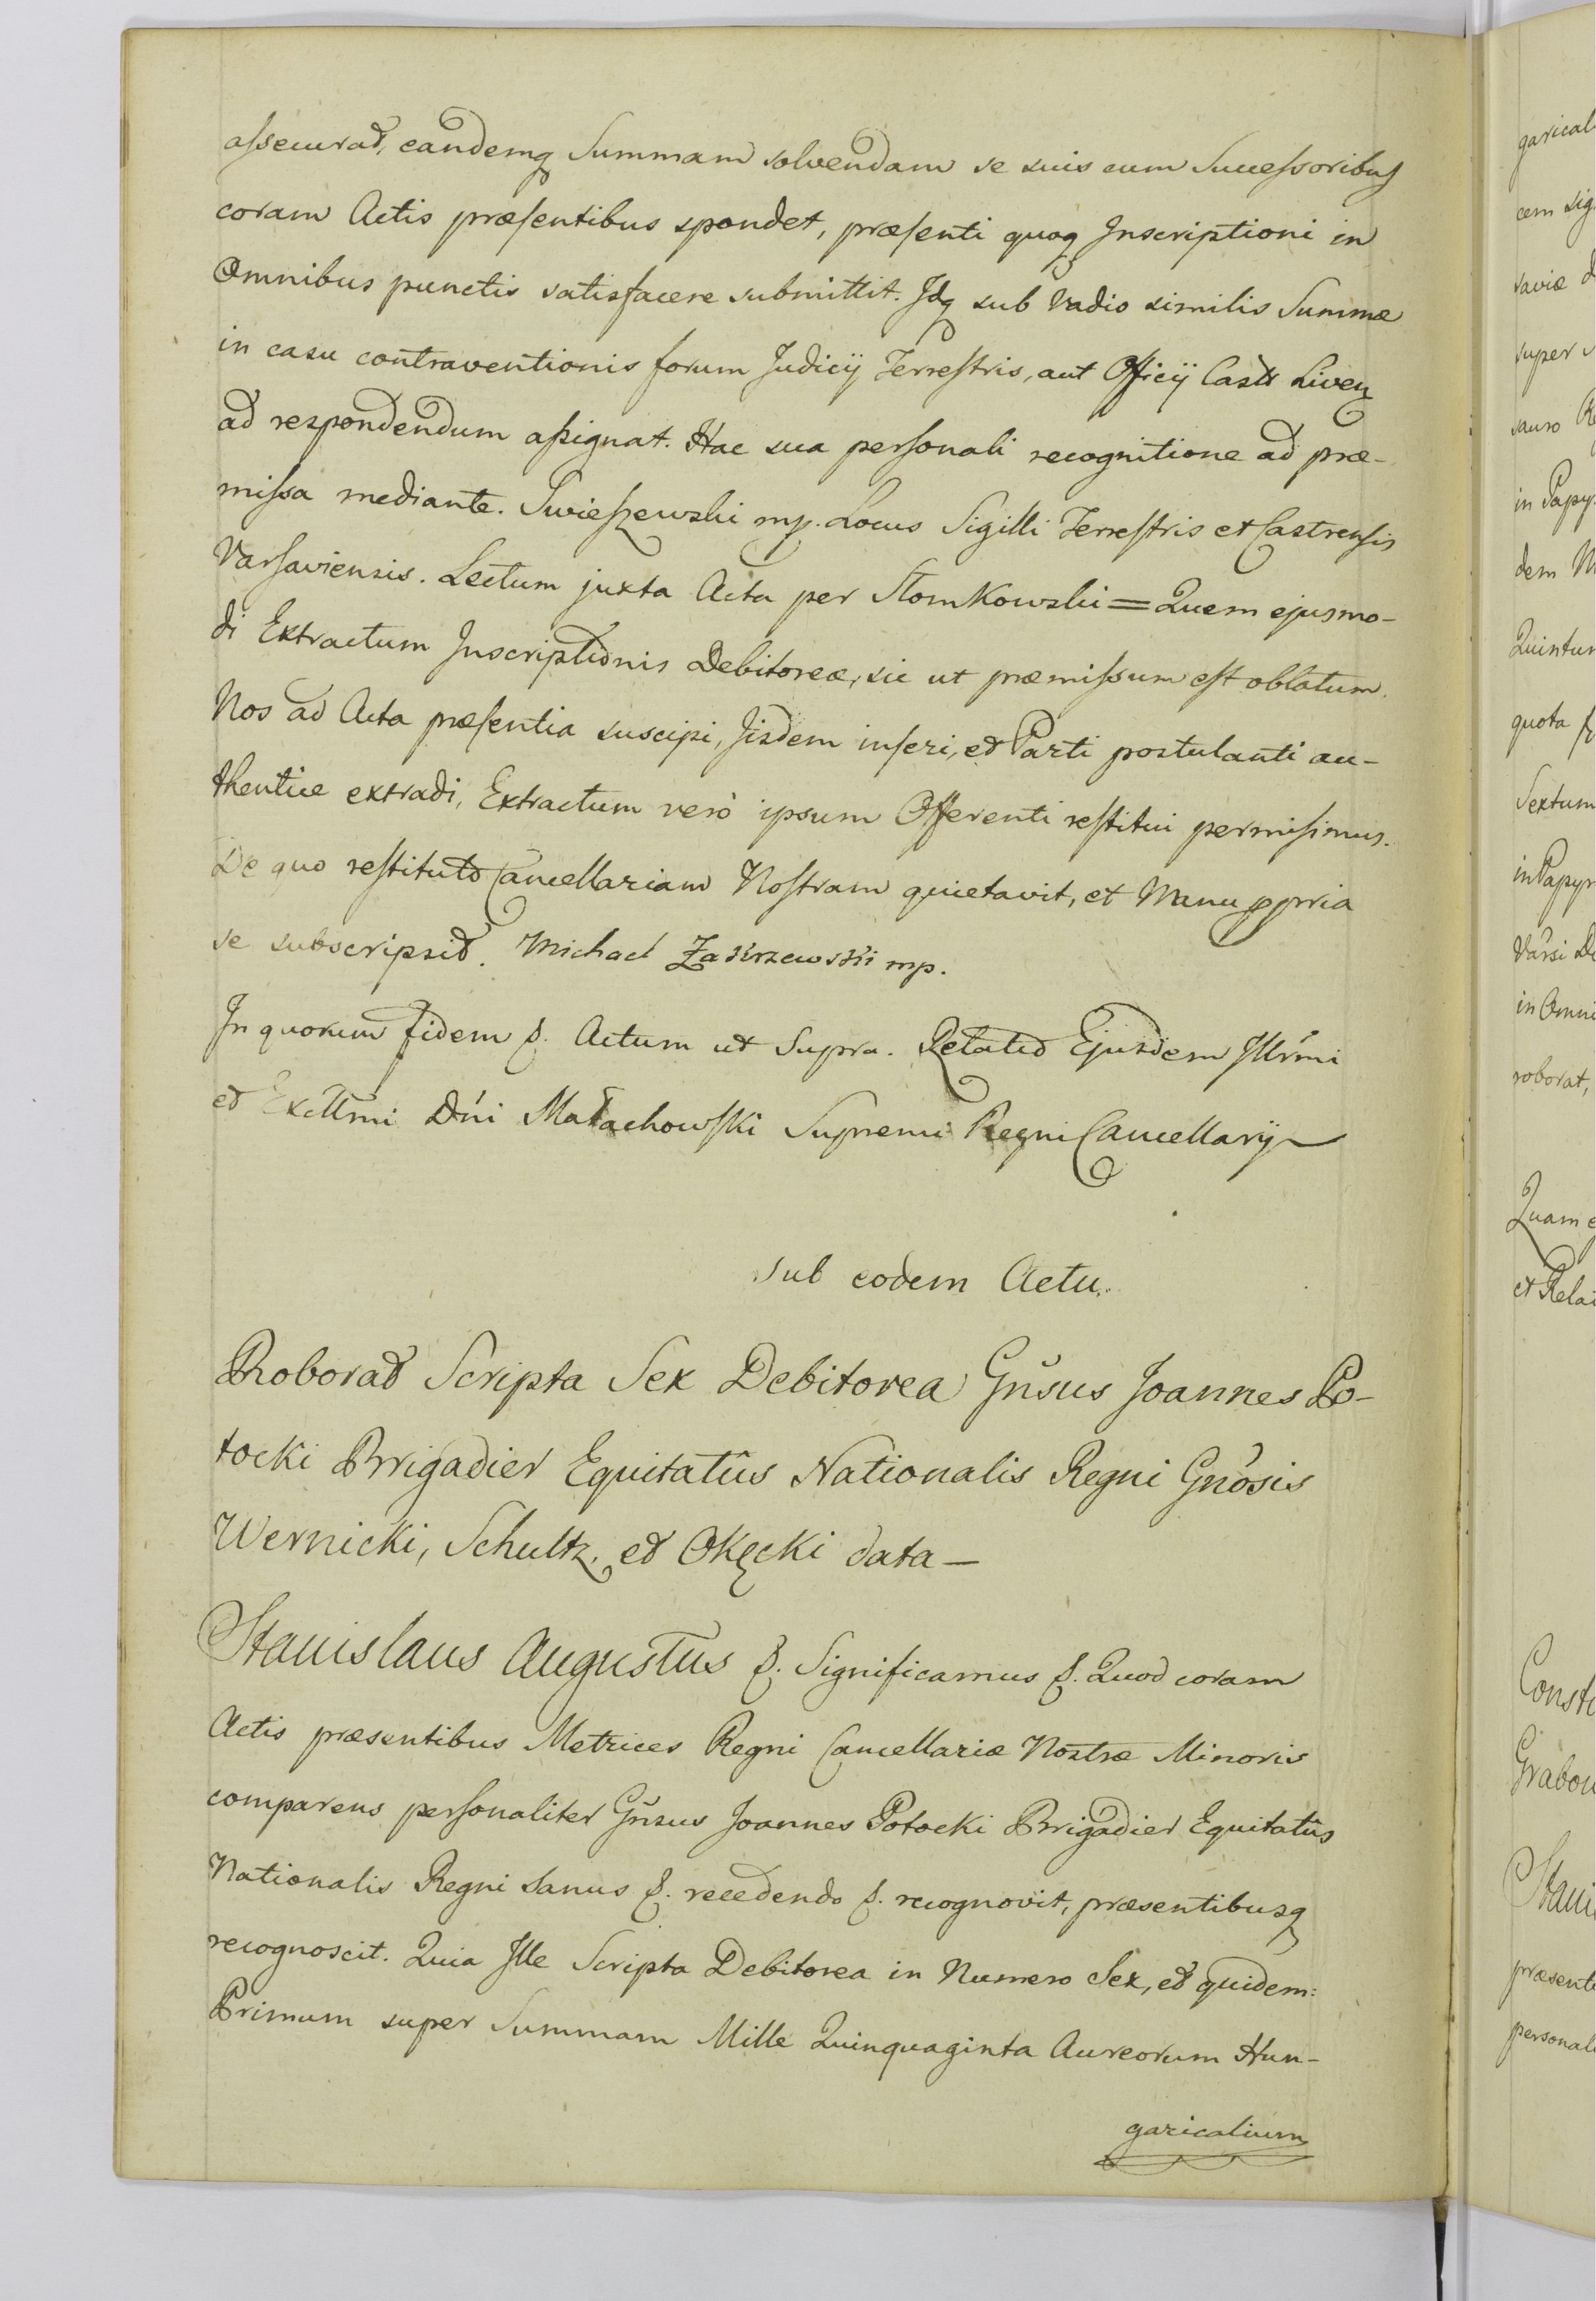 assecurat, eandemq̃ Summam solvendam se suis cum Successoribus
coram Actis præsentibus spondet, præsenti quoq̃ Inscriptioni in
Omnibus punctis satisfacere submittit. Idq̃ sub Vadio similis Summæ
in casu contraventionis forum Judicij Terrestris, aut Officij Castr Liven
ad respondendum assignat. Hac sua personali recognitione ad præ-
missa mediante. Swieszewski mp. Locus Sigilli Terrestris et Castrensis
Varsaviensis. Lectum juxta Acta per Słomkowski = Quem ejusmo-
di Extractum Inscriptionis Debitoreæ, sic ut præmissum est oblatum.
Nos ad Acta præsentia suscipi, Iisdem inseri, et Parti postulanti au-
thentice extradi, Extractum verò ipsum Offerenti restitui permisimus.
De quo restituto Cancellariam Nostram quietavit, et Manu ppria
se subscripsit. Michael Zakrzewski mp.
In quorum fidem &. Actum ut Supra. Relatio Ejusdem Illr̃mi
et Excllr̃mi Dn̄i Małachowski Supremi Regni Cancellarij
Sub eodem Actu.
Roborat Scripta Sex Debitorea Gn̄sus Joannes Po-
tocki Brigadier Equitatûs Nationalis Regni Gn̄osis
Wernicki, Schultz, et Okęcki data –
Stanislaus Augustus &. Significamus &. Quod coram
Actis præsentibus Metrices Regni Cancellariæ Nostræ Minoris
comparens personaliter Gn̄sus Joannes Potocki Brigadier Equitatûs
Nationalis Regni sanus &. recedendo &. recognovit, præsentibusq̃
recognoscit. Quia Ille Scripta Debitorea in Numero Sex, et quidem:
Primum super Summam Mille Quinquaginta Aureorum Hun-
garicalium